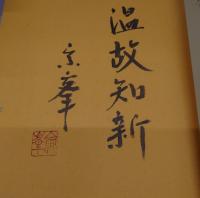 温故知新
京峯